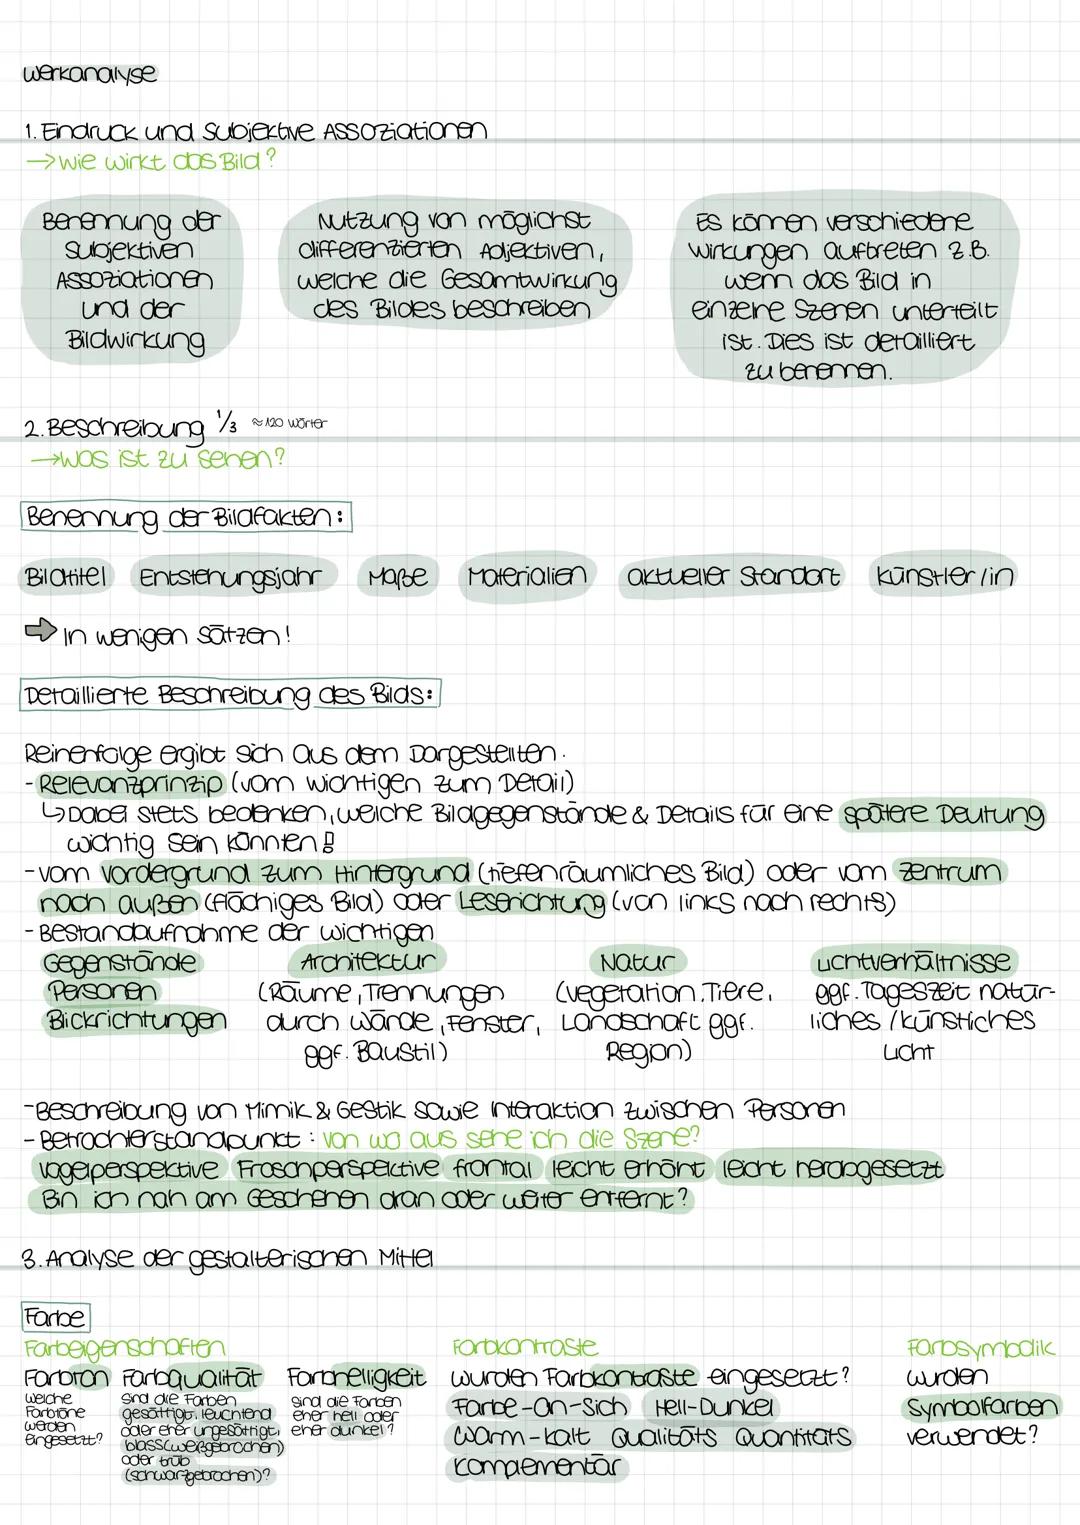 Werkanalyse
1. Eindruck und subjektive Assoziationen
→ Wie wirkt das Bild?
Benennung der
subjektiven
Assoziationen
und der
Bildwirkung
Nutzung von möglichst
differenzierten Adjektiven,
welche die Gesamtwirkung
des Bildes beschreiben
Es können verschiedene
Wirkungen auftreten z.B.
wenn das Bild in
einzelne Szenen unterteilt
ist. Dies ist detailliert
zu benennen.
2. Beschreibung 1/3 ≈120 Wörter
→ Was ist zu sehen?
Benennung der Bildfakten:
Bildtitel Entstehungsjahr Maße Materialien aktueller Standort Künstler/in
⇨ In wenigen Sätzen!
Detaillierte Beschreibung des Bilds:
Reihenfolge ergibt sich aus dem Dargestellten.
- Relevanzprinzip (vom wichtigen zum Detail)
↳ Dabei stets bedenken, welche Bildgegenstände & Details für eine spätere Deutung
wichtig sein könnten!
- vom Vordergrund zum Hintergrund (tiefenräumliches Bild) oder vom Zentrum
nach außen (flächiges Bild) oder Leserichtung (von links nach rechts)
- Bestandaufnahme der wichtigen
Gegenstände
Personen
Blickrichtungen
Architektur
(Räume, Trennungen
durch Wände, Fenster,
ggf. Baustil)
Natur
(Vegetation, Tiere,
Landschaft ggf.
Region)
Lichtverhältnisse
ggf. Tageszeit natür-
liches / künstliches
Licht
- Beschreibung von Mimik & Gestik sowie Interaktion zwischen Personen
- Betrachterstandpunkt: Von wo aus sehe ich die Szene?
Vogelperspektive Froschperspektive frontal leicht erhöht leicht herabgesetzt
Bin ich nah am Geschehen dran oder weiter entfernt?
3. Analyse der gestalterischen Mittel
Farbe
Farbeigenschaften
Farbton
Welche
Farbtöne
werden
eingesetzt?
Farbqualität
Sind die Farben
gesättigt, leuchtend
oder eher ungesättigt,
blass (weißgebrochen)
oder trüb
(schwarzgebrochen)?
Farbhelligkeit
Sind die Farben
eher hell oder
eher dunkel?
Farbkontraste
Wurden Farbkontraste eingesetzt?
Farbe-an-Sich Hell-Dunkel
Warm-kalt Qualitäts Quantitäts
Komplementär
Farbsymbolik
Wurden
Symbolfarben
verwendet?